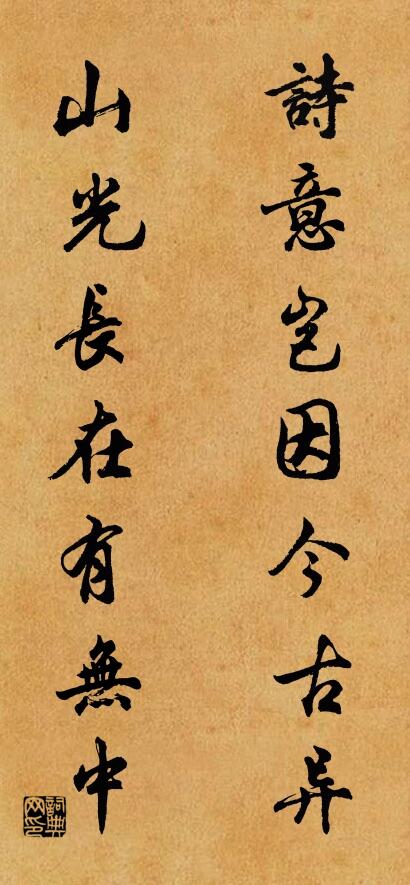 詩意豈因今古异
山光長在有無中
詞典网印